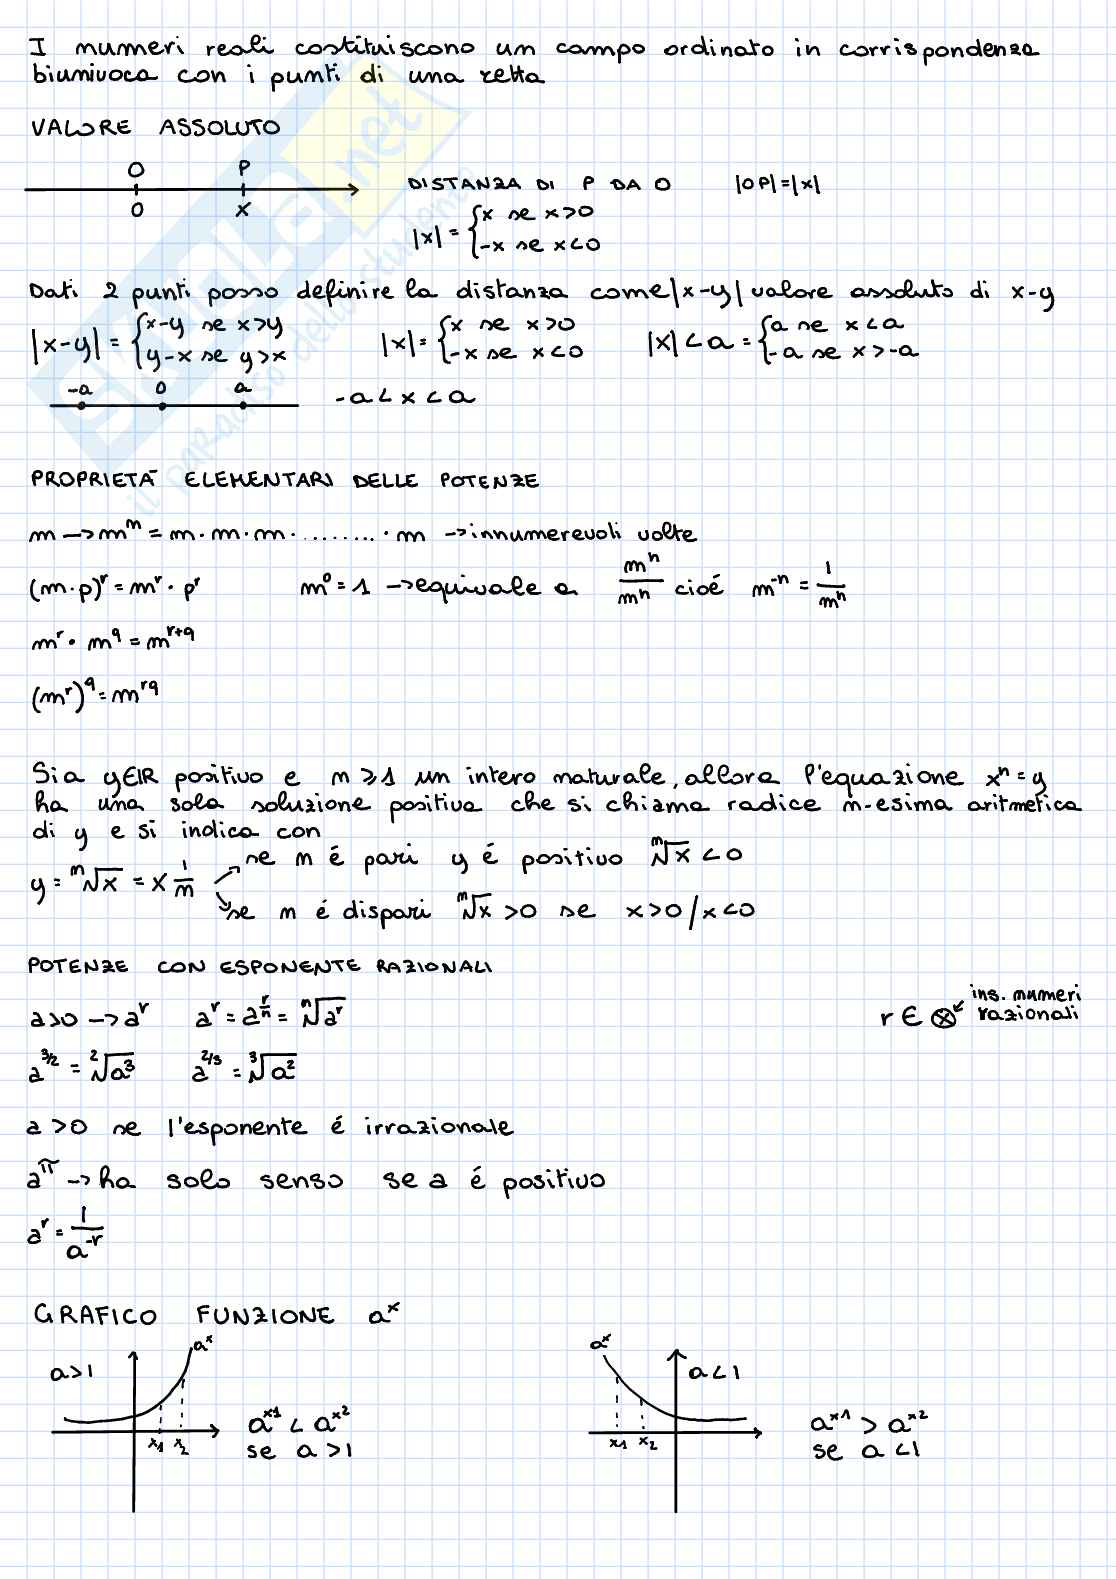 I numeri reali costituiscono un campo ordinato in corrispondenza
biunivoca con i punti di una retta
VALORE ASSOLUTO
O P
0 x
DISTANZA DI P DA O |OP|=|x|
|x| = { x se x>0
-x se x<0
Dati 2 punti posso definire la distanza come |x-y| valore assoluto di x-y
|x-y| = { x-y se x>y
y-x se y>x
|x| = { x se x>0
-x se x<0
|x|<a = { a se x<a
-a se x>-a
-a 0 a
-a<x<a
PROPRIETÀ ELEMENTARI DELLE POTENZE
m → mⁿ = m·m·m·.........·m → innumerevoli volte
(m·p)^r = m^r · p^r m⁰ = 1 → equivale a mⁿ/mⁿ cioé m⁻ⁿ = 1/mⁿ
m^r · m^q = m^(r+q)
(m^r)^q = m^(rq)
Sia y∈IR positivo e n⩾1 un intero naturale, allora l'equazione xⁿ=y
ha una sola soluzione positiva che si chiama radice n-esima aritmetica
di y e si indica con
y = ⁿ√x = x 1/n
se n é pari y é positivo ⁿ√x < 0
se n é dispari ⁿ√x > 0 se x>0/x<0
POTENZE CON ESPONENTE RAZIONALI
a>0 → a^r a^r = a^(r/n) = ⁿ√a^r r ∈ Q ins. numeri
razionali
a^(3/2) = ²√a³ a^(2/3) = ³√a²
a>0 se l'esponente é irrazionale
a^π → ha solo senso se a é positivo
a^r = 1/a^(-r)
GRAFICO FUNZIONE a^x
a>1 a^x
x1 x2
a^x1 < a^x2
se a>1
a^x a<1
x1 x2
a^x1 > a^x2
se a<1
SKUOLA.net
il paradiso dello studente